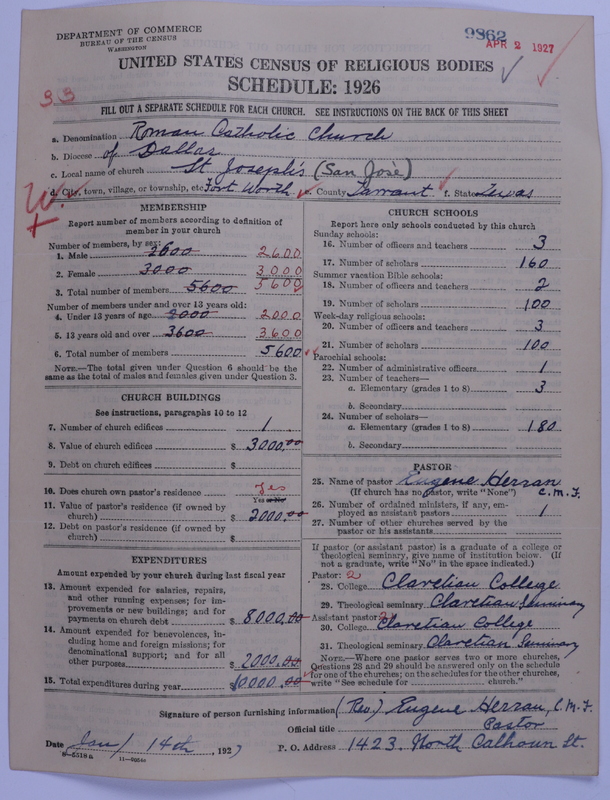 DEPARTMENT OF COMMERCE
BUREAU OF THE CENSUS
WASHINGTON
9862
APR 2 1927
UNITED STATES CENSUS OF RELIGIOUS BODIES
SCHEDULE: 1926
33
FILL OUT A SEPARATE SCHEDULE FOR EACH CHURCH. SEE INSTRUCTIONS ON THE BACK OF THIS SHEET
a. Denomination Roman Catholic Church
b. Diocese of Dallas
c. Local name of church St Joseph's (San José)
d. City, town, village, or township, etc Fort Worth e. County Tarrant f. State Texas
MEMBERSHIP
Report number of members according to definition of member in your church
Number of members, by sex:
1. Male 2600 2600
2. Female 3000 3000
3. Total number of members 5600 5600
Number of members under and over 13 years old:
4. Under 13 years of age 2000 2000
5. 13 years old and over 3600 3600
6. Total number of members 5600
NOTE.—The total given under Question 6 should be the same as the total of males and females given under Question 3.
CHURCH BUILDINGS
See instructions, paragraphs 10 to 12
7. Number of church edifices 1
8. Value of church edifices $ 3000.00
9. Debt on church edifices $
10. Does church own pastor's residence Yes
Yes or No
11. Value of pastor's residence (if owned by church) $ 2000.00
12. Debt on pastor's residence (if owned by church) $
EXPENDITURES
Amount expended by your church during last fiscal year
13. Amount expended for salaries, repairs, and other running expenses; for improvements or new buildings; and for payments on church debt $ 8000.00
14. Amount expended for benevolences, including home and foreign missions; for denominational support; and for all other purposes $ 2000.00
15. Total expenditures during year $ 10000.00
CHURCH SCHOOLS
Report here only schools conducted by this church
Sunday schools:
16. Number of officers and teachers 3
17. Number of scholars 160
Summer vacation Bible schools:
18. Number of officers and teachers 2
19. Number of scholars 100
Week-day religious schools:
20. Number of officers and teachers 3
21. Number of scholars 100
Parochial schools:
22. Number of administrative officers 1
23. Number of teachers—
a. Elementary (grades 1 to 8) 3
b. Secondary
24. Number of scholars—
a. Elementary (grades 1 to 8) 180
b. Secondary
PASTOR
25. Name of pastor Eugene Herran
(If church has no pastor, write "None") C.M.F.
26. Number of ordained ministers, if any, employed as assistant pastors 1
27. Number of other churches served by the pastor or his assistants
If pastor (or assistant pastor) is a graduate of a college or theological seminary, give name of institution below. (If not a graduate, write "No" in the space indicated.)
Pastor: 2
28. College Claretian College
29. Theological seminary Claretian Seminary
Assistant pastor:
30. College Claretian College
31. Theological seminary Claretian Seminary
NOTE.—Where one pastor serves two or more churches, Questions 28 and 29 should be answered only on the schedule for one of the churches; on the schedules for the other churches, write "See schedule for ........ church."
Signature of person furnishing information (Rev.) Eugene Herran, C.M.F.
Official title Pastor
Date Jan/ 14th, 1927 P. O. Address 1423. North Calhoun St.
8-5518a 11-9054a